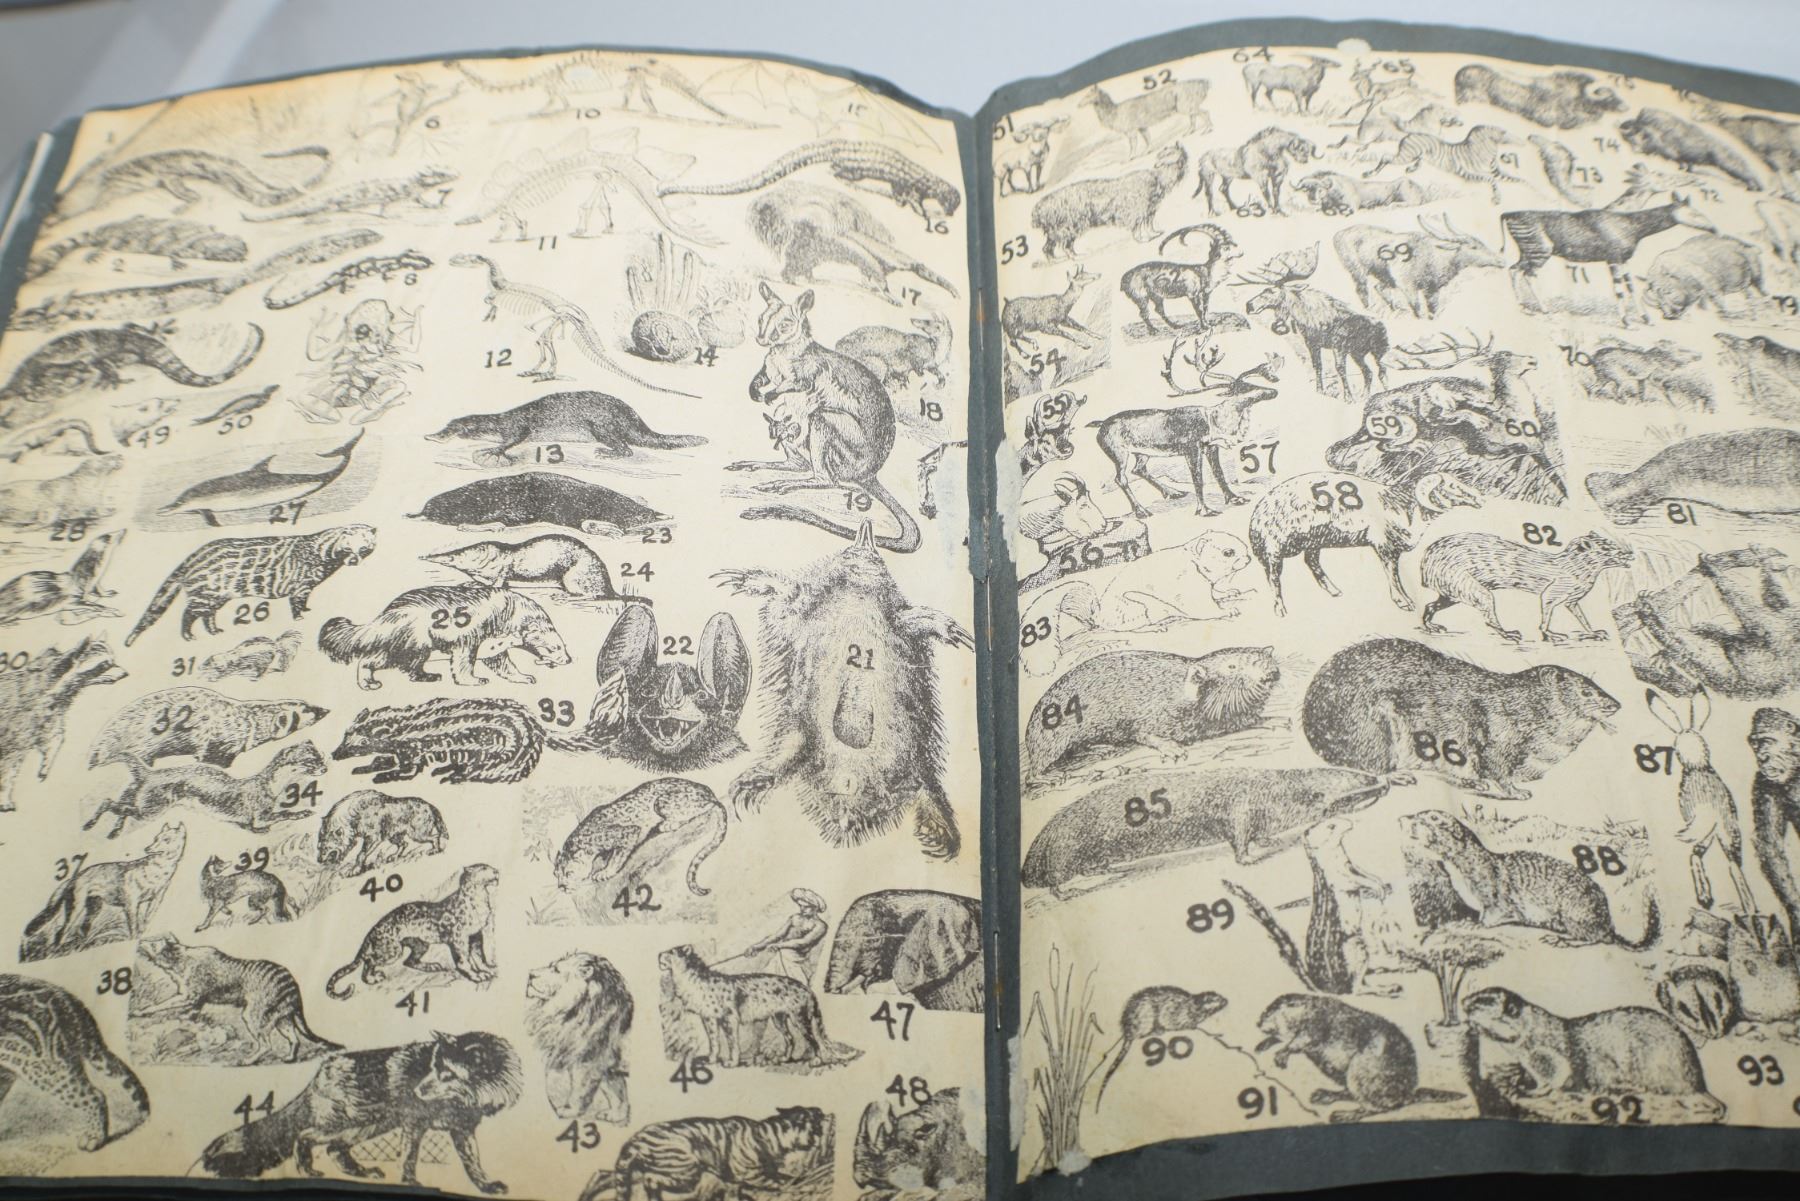 1
6
10
15
7
16
2
11
8
17
12
14
18
49
50
13
19
28
27
23
24
26
25
22
21
30
31
32
33
34
37
39
40
42
38
41
47
46
44
43
48
64
65
52
51
75
74
67
73
63
68
72
53
62
69
71
79
61
54
70
55
59
60
57
58
81
56
82
83
84
86
87
85
88
89
90
91
92
93